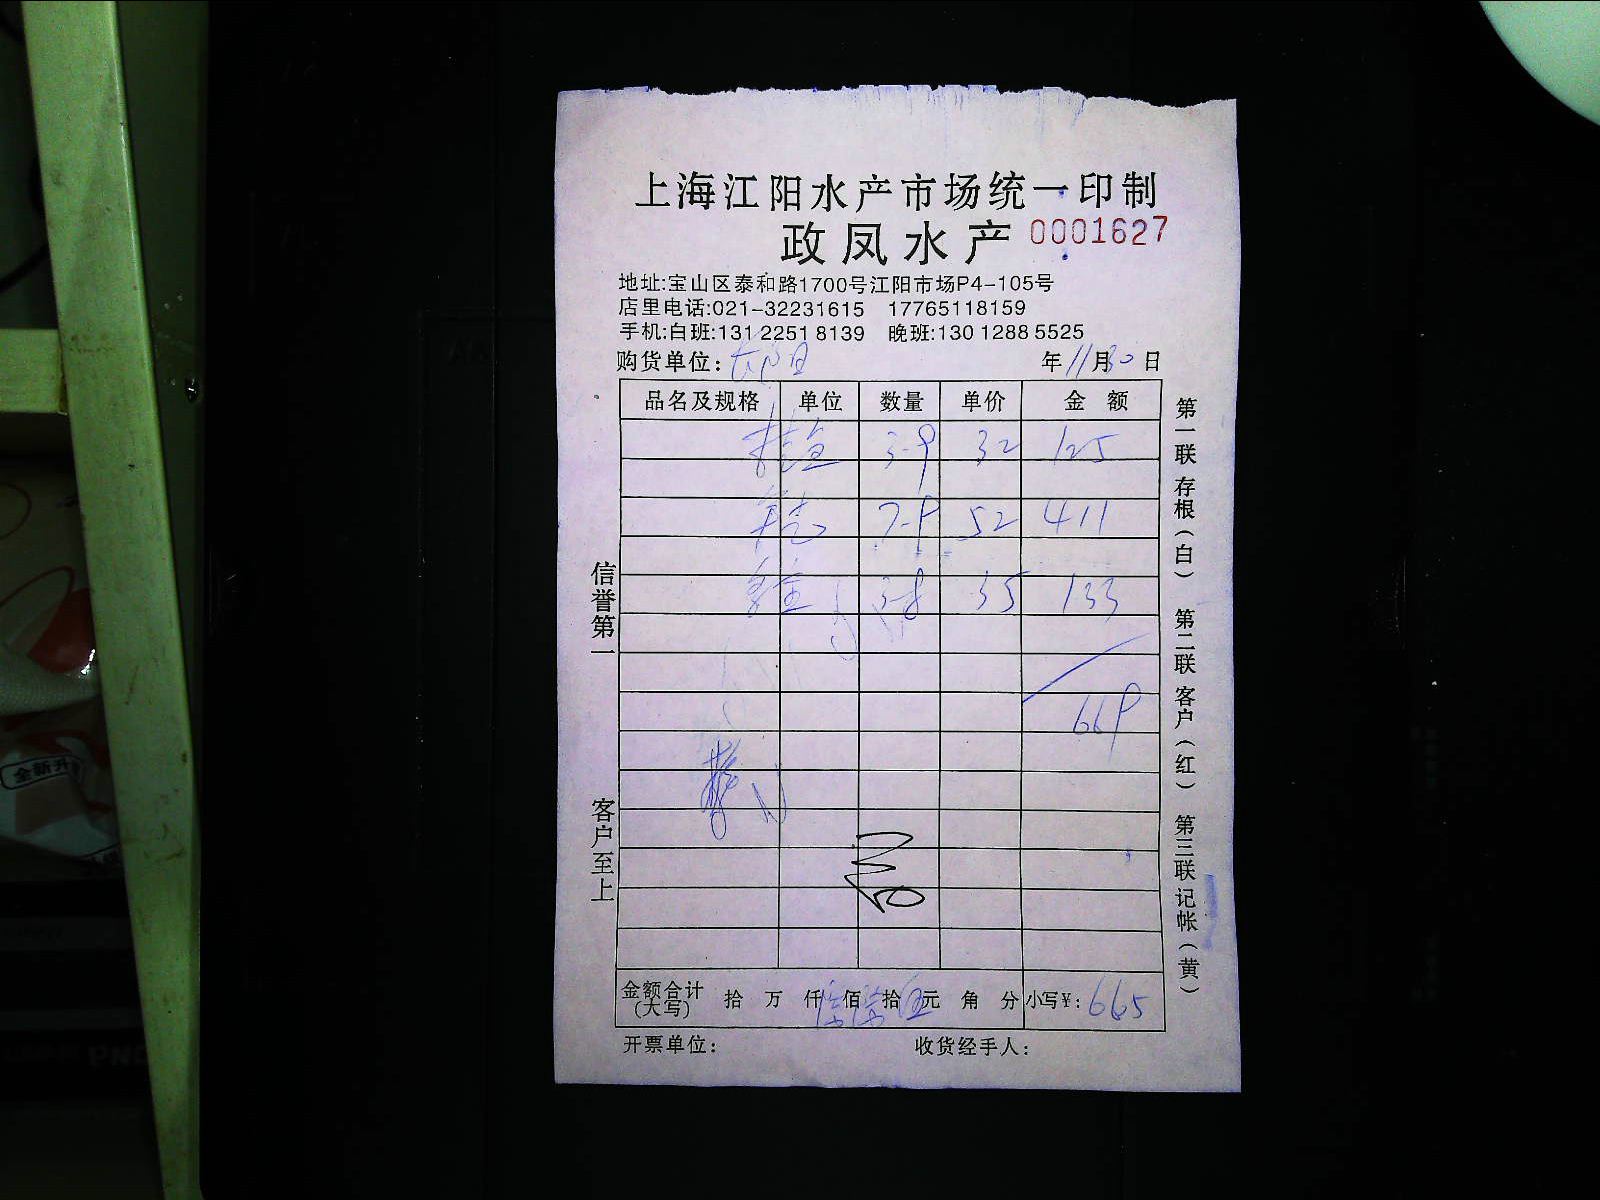 上海江阳水产市场统一印制
政凤水产 0001627
地址:宝山区泰和路1700号江阳市场P4-105号
店里电话:021-32231615 17765118159
手机:白班:131 2251 8139 晚班:130 1288 5525
购货单位: 年11月30日
品名及规格 单位 数量 单价 金额
桂鱼 3-9 32 125
7-9 52 411
3-8 35 133
669
金额合计(大写) 拾 万 仟 佰 拾 伍元 角 分 小写¥: 665
开票单位: 收货经手人:
信誉第一 客户至上
第一联存根(白) 第二联客户(红) 第三联记帐(黄)
全新升